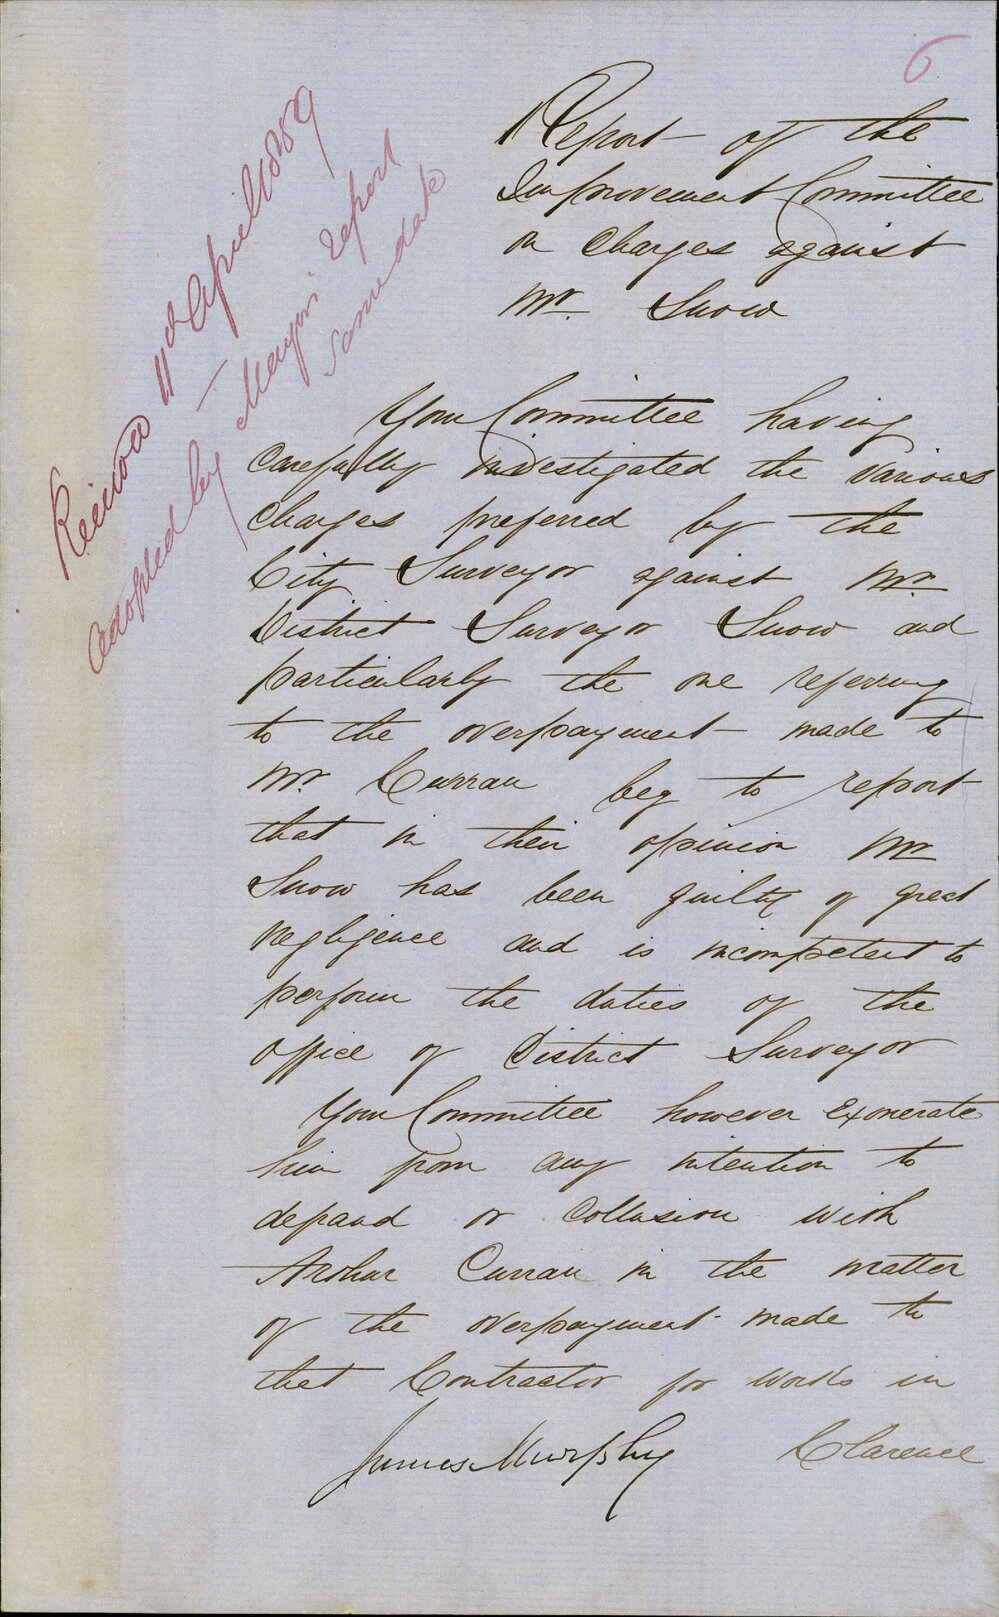 6
Report of the
Improvement Committee
on Charges against
Mr. Snow
Received 11th April 1859
Adopted by Mayor's report
Same date
Your Committee having
Carefully investigated the various
Charges preferred by the
City Surveyor against Mr.
District Surveyor Snow and
particularly the one referring
to the overpayment made to
Mr. Curran beg to report
that in their opinion Mr
Snow has been guilty of great
negligence and is incompetent to
perform the duties of the
Office of District Surveyor
Your Committee however exonerate
him from any intention to
defraud or collusion with
Arthur Curran in the matter
of the overpayment made to
that Contractor for works in
James Murphy Clarence